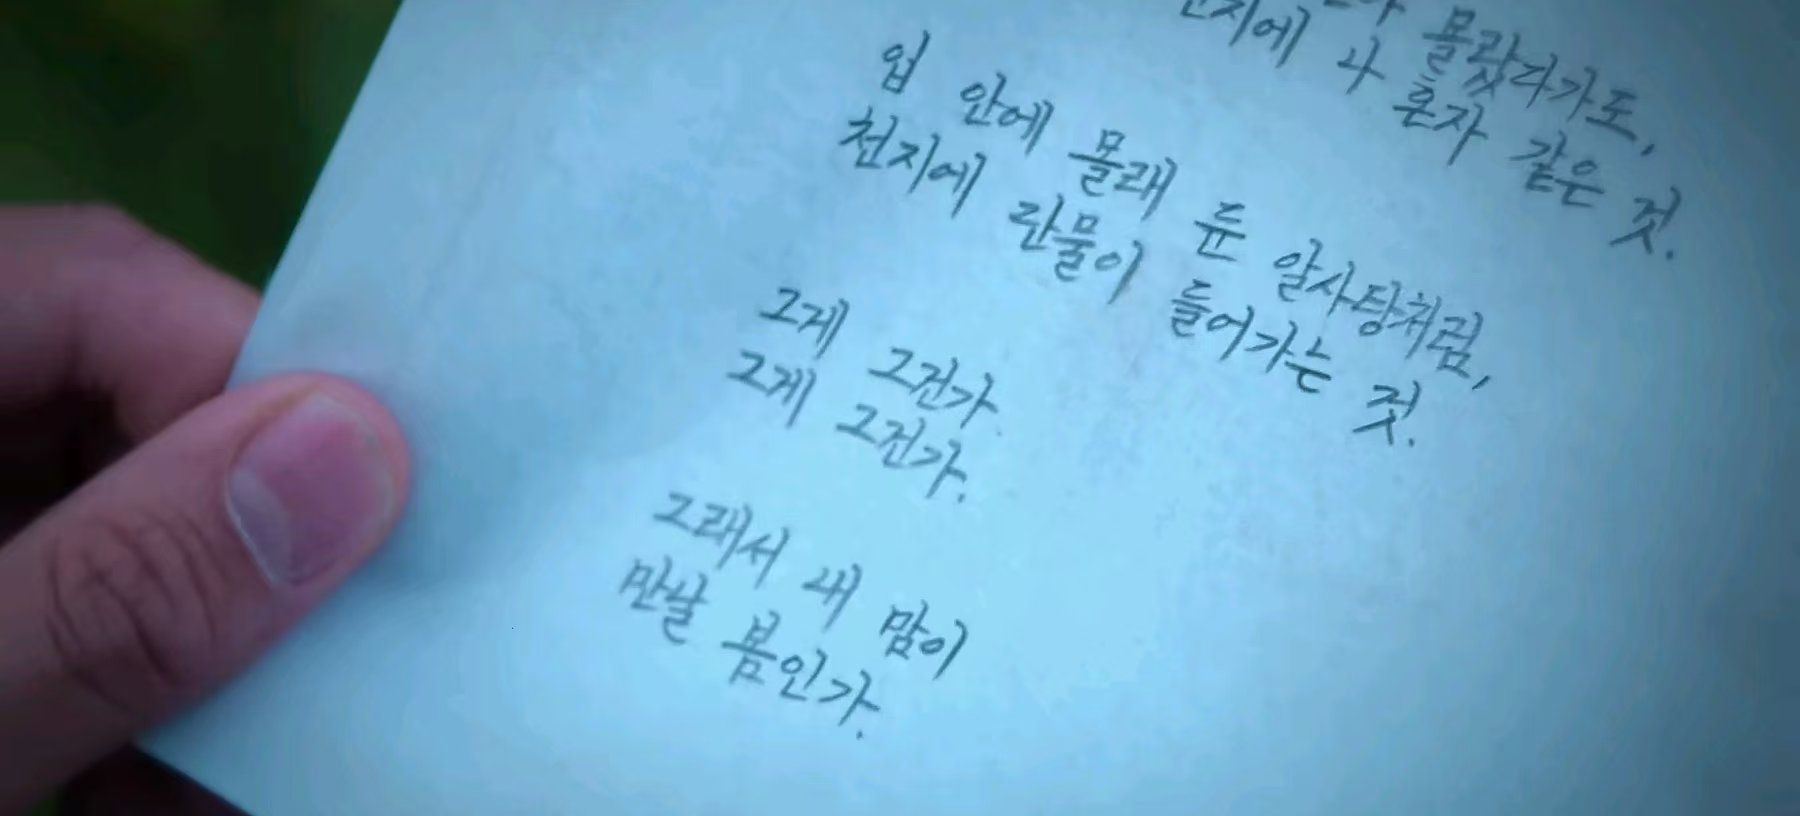 몰랐다가도,
천지에 나 혼자 같은 것.
입 안에 몰래 둔 알사탕처럼,
천지에 단물이 들어가는 것.
그게 그건가.
그게 그건가.
그래서 내 맘이
만날 봄인가.